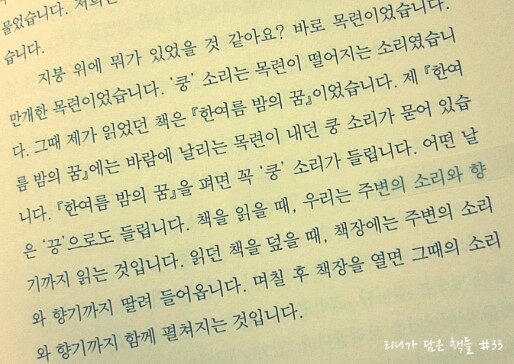 물었습니다. 저희는
습니다.
지붕 위에 뭐가 있었을 것 같아요? 바로 목련이었습니다.
만개한 목련이었습니다. ‘쿵’ 소리는 목련이 떨어지는 소리였습니
다. 그때 제가 읽었던 책은 『한여름 밤의 꿈』이었습니다. 제 『한여
름 밤의 꿈』에는 바람에 날리는 목련이 내던 쿵 소리가 묻어 있습
니다. 『한여름 밤의 꿈』을 펴면 꼭 ‘쿵’ 소리가 들립니다. 어떤 날
은 ‘끙’으로도 들립니다. 책을 읽을 때, 우리는 주변의 소리와 향
기까지 읽는 것입니다. 읽던 책을 덮을 때, 책장에는 주변의 소리
와 향기까지 딸려 들어옵니다. 며칠 후 책장을 열면 그때의 소리
와 향기까지 함께 펼쳐지는 것입니다.
리니가 담은 책들 #33